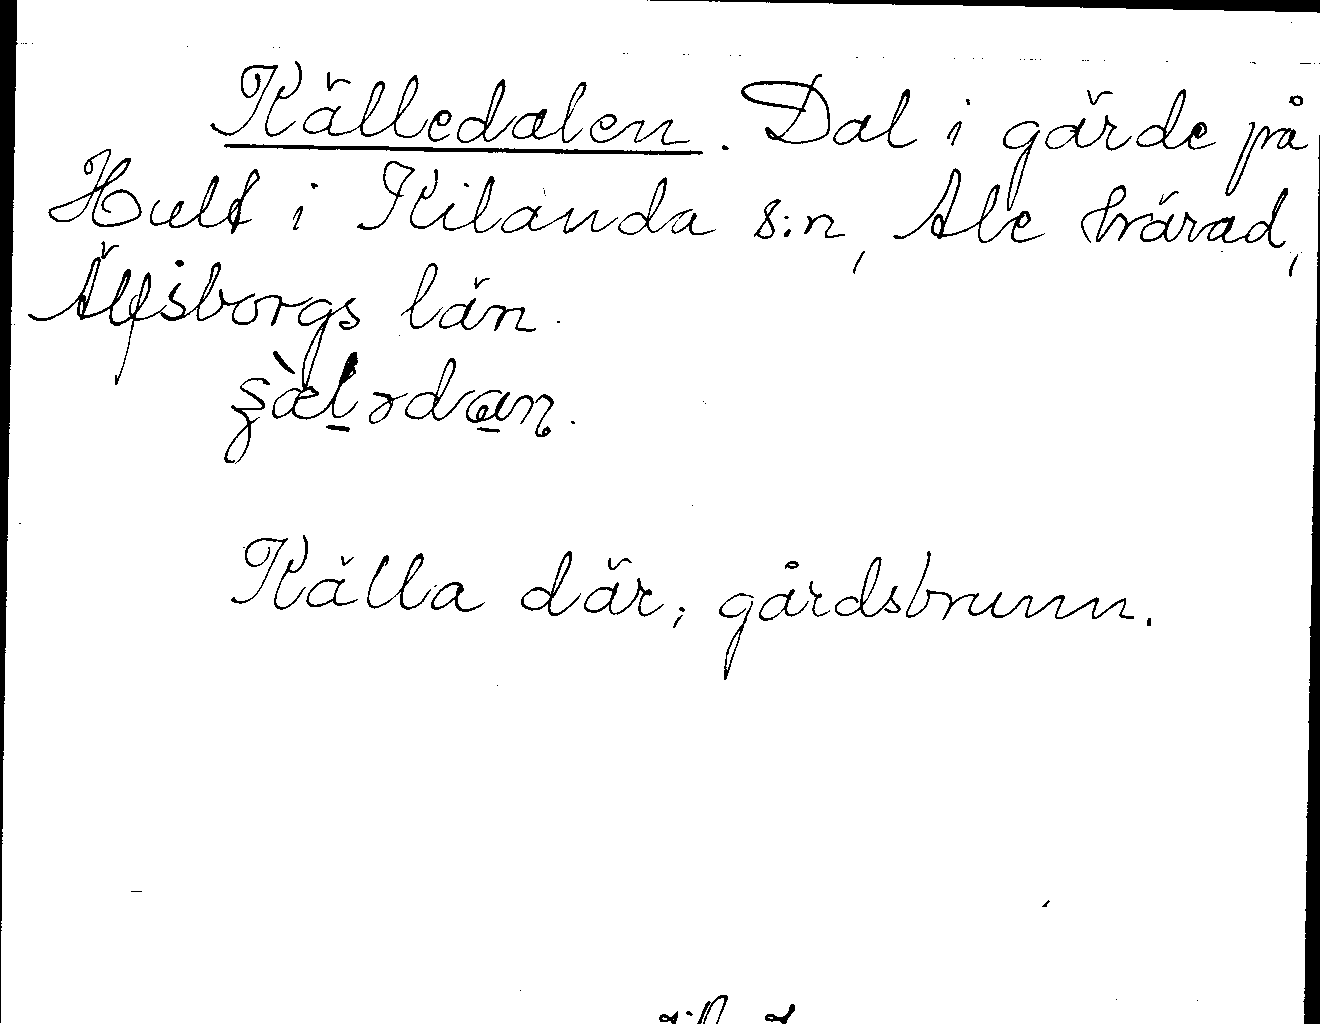 Källedalen. Dal i gärde på
Hult i Kilanda s:n, Ale härad,
Älfsborgs län.
Källa där; gårdsbrunn.